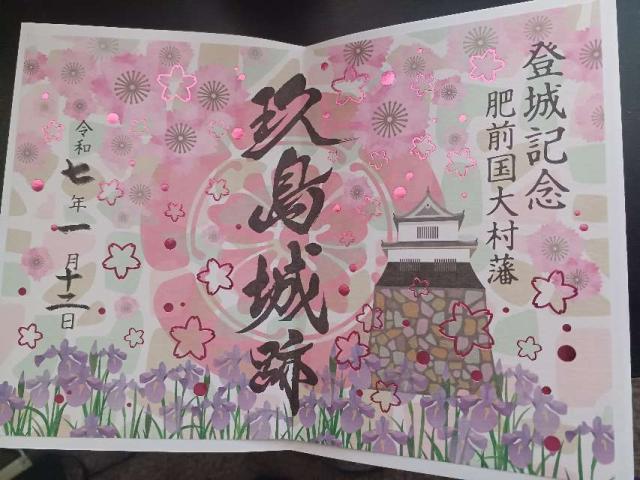 登城記念
肥前国大村藩
玖島城跡
令和七年一月十二日